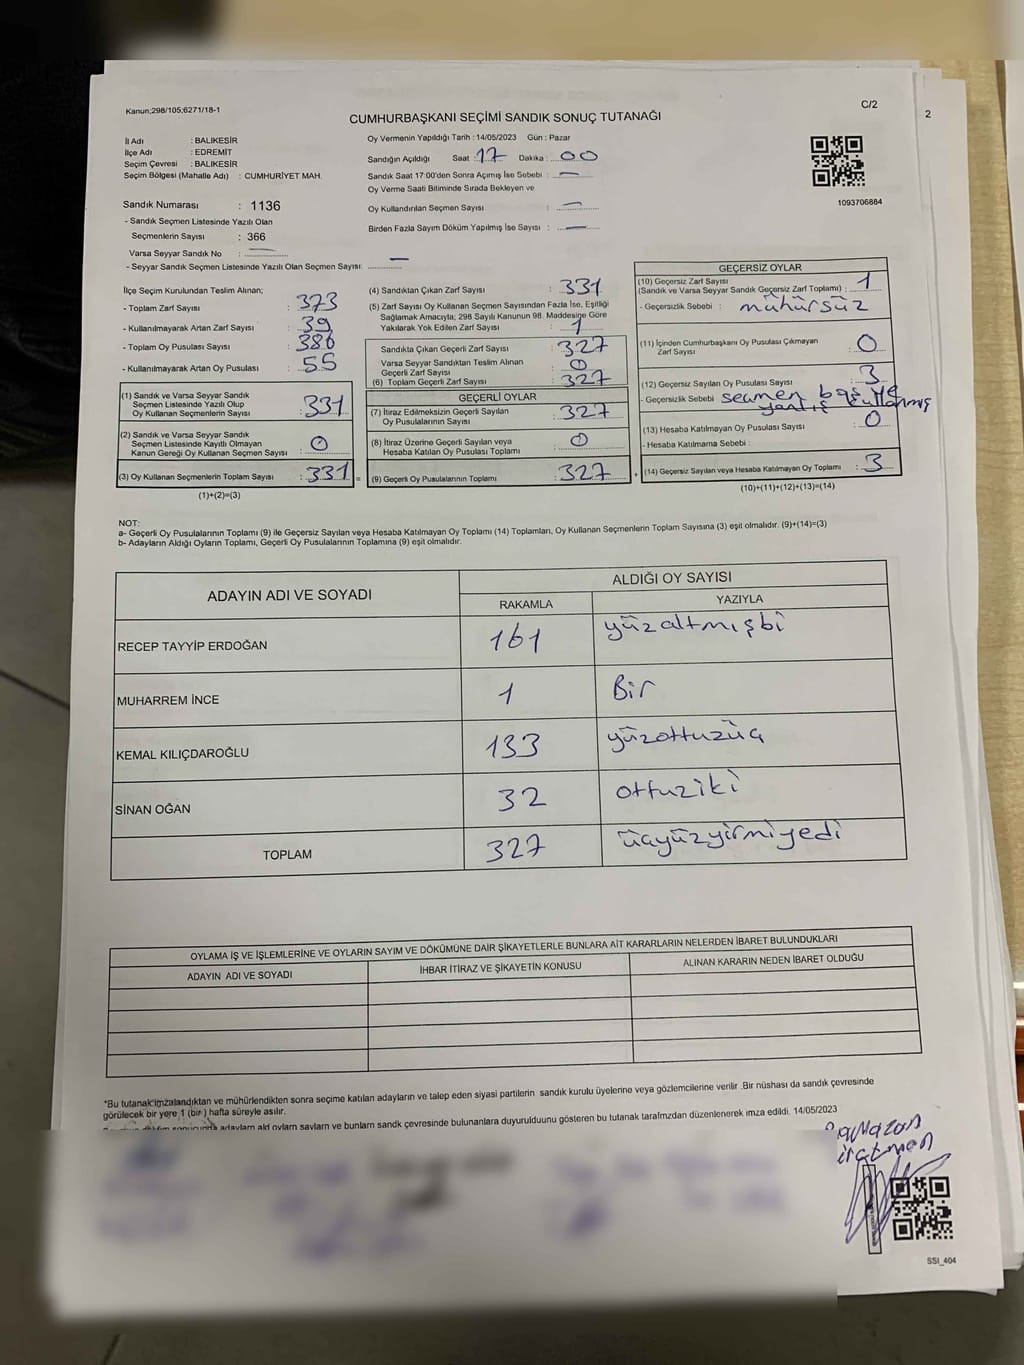 Kanun;298/105;6271/18-1
C/2
2
CUMHURBAŞKANI SEÇİMİ SANDIK SONUÇ TUTANAĞI
İl Adı : BALIKESİR
İlçe Adı : EDREMİT
Seçim Çevresi : BALIKESİR
Seçim Bölgesi (Mahalle Adı) : CUMHURİYET MAH.
Sandık Numarası : 1136
- Sandık Seçmen Listesinde Yazılı Olan
Seçmenlerin Sayısı : 366
Varsa Seyyar Sandık No :
- Seyyar Sandık Seçmen Listesinde Yazılı Olan Seçmen Sayısı:
Oy Vermenin Yapıldığı Tarih : 14/05/2023 Gün : Pazar
Sandığın Açıldığı Saat : 17 Dakika : 00
Sandık Saat 17:00'den Sonra Açımış İse Sebebi : —
Oy Verme Saati Bitiminde Sırada Bekleyen ve
Oy Kullandırılan Seçmen Sayısı : —
Birden Fazla Sayım Döküm Yapılmış İse Sayısı : —
1093706884
İlçe Seçim Kurulundan Teslim Alınan;
- Toplam Zarf Sayısı : 373
- Kullanılmayarak Artan Zarf Sayısı : 39
- Toplam Oy Pusulası Sayısı : 386
- Kullanılmayarak Artan Oy Pusulası : 55
(1) Sandık ve Varsa Seyyar Sandık
Seçmen Listesinde Yazılı Olup
Oy Kullanan Seçmenlerin Sayısı : 331
(2) Sandık ve Varsa Seyyar Sandık
Seçmen Listesinde Kayıtlı Olmayan
Kanun Gereği Oy Kullanan Seçmen Sayısı : 0
(3) Oy Kullanan Seçmenlerin Toplam Sayısı : 331
(1)+(2)=(3)
(4) Sandıktan Çıkan Zarf Sayısı : 331
(5) Zarf Sayısı Oy Kullanan Seçmen Sayısından Fazla İse, Eşitliği
Sağlamak Amacıyla; 298 Sayılı Kanunun 98. Maddesine Göre
Yakılarak Yok Edilen Zarf Sayısı : 1
Sandıkta Çıkan Geçerli Zarf Sayısı : 327
Varsa Seyyar Sandıktan Teslim Alınan
Geçerli Zarf Sayısı : 0
(6) Toplam Geçerli Zarf Sayısı : 327
GEÇERLİ OYLAR
(7) İtiraz Edilmeksizin Geçerli Sayılan
Oy Pusulalarının Sayısı : 327
(8) İtiraz Üzerine Geçerli Sayılan veya
Hesaba Katılan Oy Pusulası Toplamı : 0
= (9) Geçerli Oy Pusulalarının Toplamı : 327 +
GEÇERSİZ OYLAR
(10) Geçersiz Zarf Sayısı
(Sandık ve Varsa Seyyar Sandık Geçersiz Zarf Toplamı) : 1
- Geçersizlik Sebebi : mühürsüz
(11) İçinden Cumhurbaşkanı Oy Pusulası Çıkmayan
Zarf Sayısı : 0
(12) Geçersiz Sayılan Oy Pusulası Sayısı : 3
- Geçersizlik Sebebi seçmen
yanlış kullanmış
(13) Hesaba Katılmayan Oy Pusulası Sayısı : 0
- Hesaba Katılmama Sebebi :
(14) Geçersiz Sayılan veya Hesaba Katılmayan Oy Toplamı : 3
(10)+(11)+(12)+(13)=(14)
NOT:
a- Geçerli Oy Pusulalarının Toplamı (9) ile Geçersiz Sayılan veya Hesaba Katılmayan Oy Toplamı (14) Toplamları, Oy Kullanan Seçmenlerin Toplam Sayısına (3) eşit olmalıdır. (9)+(14)=(3)
b- Adayların Aldığı Oyların Toplamı, Geçerli Oy Pusulalarının Toplamına (9) eşit olmalıdır.
ADAYIN ADI VE SOYADI
ALDIĞI OY SAYISI
RAKAMLA YAZIYLA
RECEP TAYYİP ERDOĞAN 161 yüzaltmışbi
MUHARREM İNCE 1 Bir
KEMAL KILIÇDAROĞLU 133 yüzottuzüç
SİNAN OĞAN 32 ottuziki
TOPLAM 327 üçyüzyirmiyedi
OYLAMA İŞ VE İŞLEMLERİNE VE OYLARIN SAYIM VE DÖKÜMÜNE DAİR ŞİKAYETLERLE BUNLARA AİT KARARLARIN NELERDEN İBARET BULUNDUKLARI
ADAYIN ADI VE SOYADI İHBAR İTİRAZ VE ŞİKAYETİN KONUSU ALINAN KARARIN NEDEN İBARET OLDUĞU
*Bu tutanak imzalandıktan ve mühürlendikten sonra seçime katılan adayların ve talep eden siyasi partilerin sandık kurulu üyelerine veya gözlemcilerine verilir .Bir nüshası da sandık çevresinde
görülecek bir yere 1 (bir ) hafta süreyle asılır.
sonucunda adayların aldı oyların sayların ve bunların sandk çevresinde bulunanlara duyurulduunu gösteren bu tutanak tarafmzdan düzenlenerek imza edildi. 14/05/2023
Ramazan
SSI_404